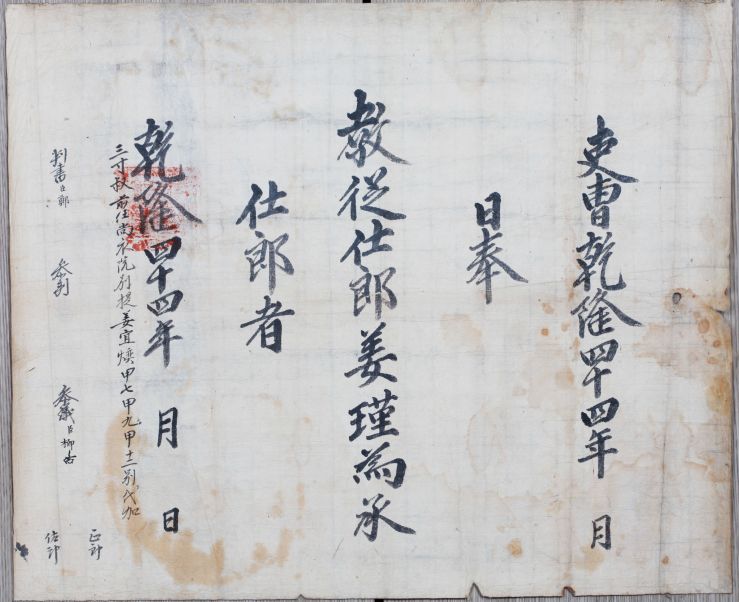 吏曹乾隆四十四年 月
日奉
教從仕郎姜瑾為承
仕郎者
乾隆四十四年 月 日
三寸 前任尚衣院別提姜宜煥甲七甲九甲士別代加
判書臣鄭 參判 參議臣柳 正郎 佐郎